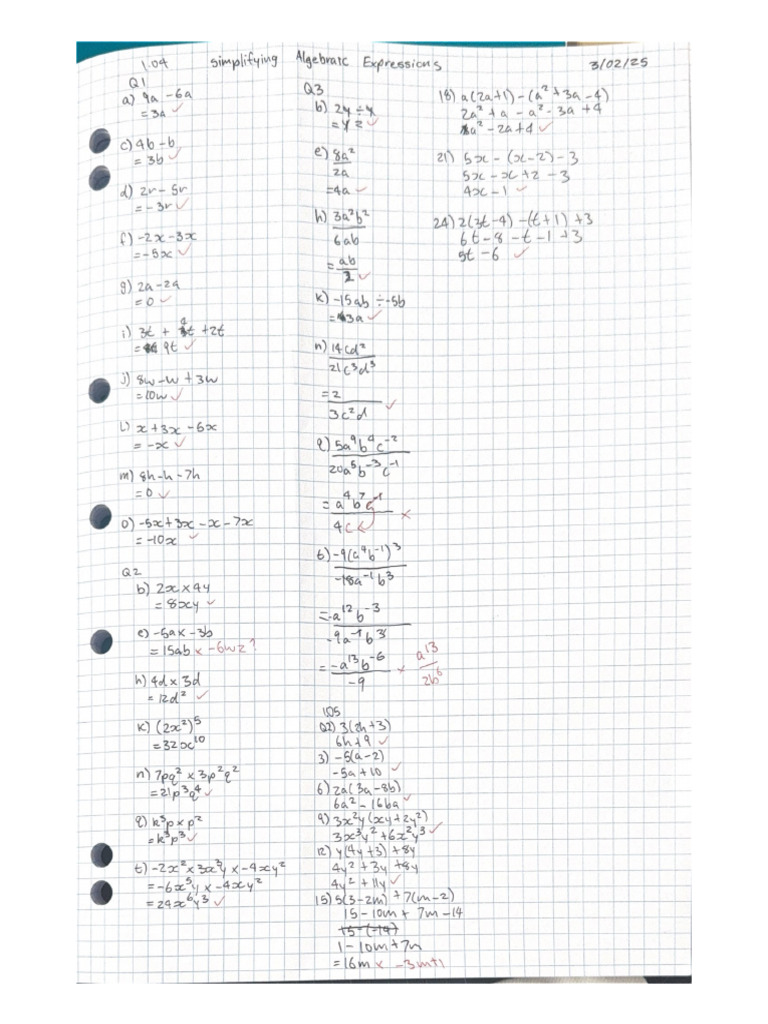 1.04 Simplifying Algebraic Expressions 3/02/25
Q1
a) 9a - 6a
= 3a ✓
c) 4b - b
= 3b ✓
d) 2r - 5r
= -3r ✓
f) -2x - 3x
= -5x ✓
g) 2a - 2a
= 0 ✓
i) 3t + 4t + 2t
= 9t ✓
j) 8w - w + 3w
= 10w ✓
l) x + 3x - 5x
= -x ✓
m) 8h - h - 7h
= 0 ✓
o) -5x + 3x - x - 7x
= -10x ✓
Q2
b) 2x × 4y
= 8xy ✓
e) -5a × -3b
= 15ab × -6wz ?
h) 4d × 3d
= 12d² ✓
k) (2x²)⁵
= 32x¹⁰
n) 7pq² × 3p²q²
= 21p³q⁴ ✓
q) k³p × p²
= k³p³ ✓
t) -2x² × 3x³y × -4xy²
= -6x⁵y × -4xy²
= 24x⁶y³ ✓
Q3
b) 2y ÷ y
= 2 ✓
e) 8a²
2a
= 4a ✓
h) 3a²b²
6ab
= ab
2 ✓
k) -15ab ÷ -5b
= 3a ✓
n) 14cd²
21c³d³
= 2
3c²d ✓
q) 5a⁹b⁴c⁻²
20a⁵b⁻³c⁻¹
= a⁴b⁷c⁻¹
4c ×
t) -9(a⁴b⁻¹)³
-18a⁻¹b³
= -a¹²b⁻³
-9a⁻¹b³
= -a¹³b⁻⁶ × a¹³
-9 2b⁶
1.05
Q2) 3(2h + 3)
6h + 9 ✓
3) -5(a - 2)
-5a + 10 ✓
6) 2a(3a - 8b)
6a² - 16ba ✓
9) 3x²y(xy + 2y²)
3x³y² + 6x²y³ ✓
12) y(4y + 3) + 8y
4y² + 3y + 8y
4y² + 11y ✓
15) 5(3 - 2m) + 7(m - 2)
15 - 10m + 7m - 14
15 - (-14)
1 - 10m + 7m
= 16m × -3m+1
18) a(2a+1) - (a² + 3a - 4)
2a² + a - a² - 3a + 4
a² - 2a + 4 ✓
21) 5x - (x - 2) - 3
5x - x + 2 - 3
4x - 1 ✓
24) 2(3t - 4) - (t + 1) + 3
6t - 8 - t - 1 + 3
5t - 6 ✓